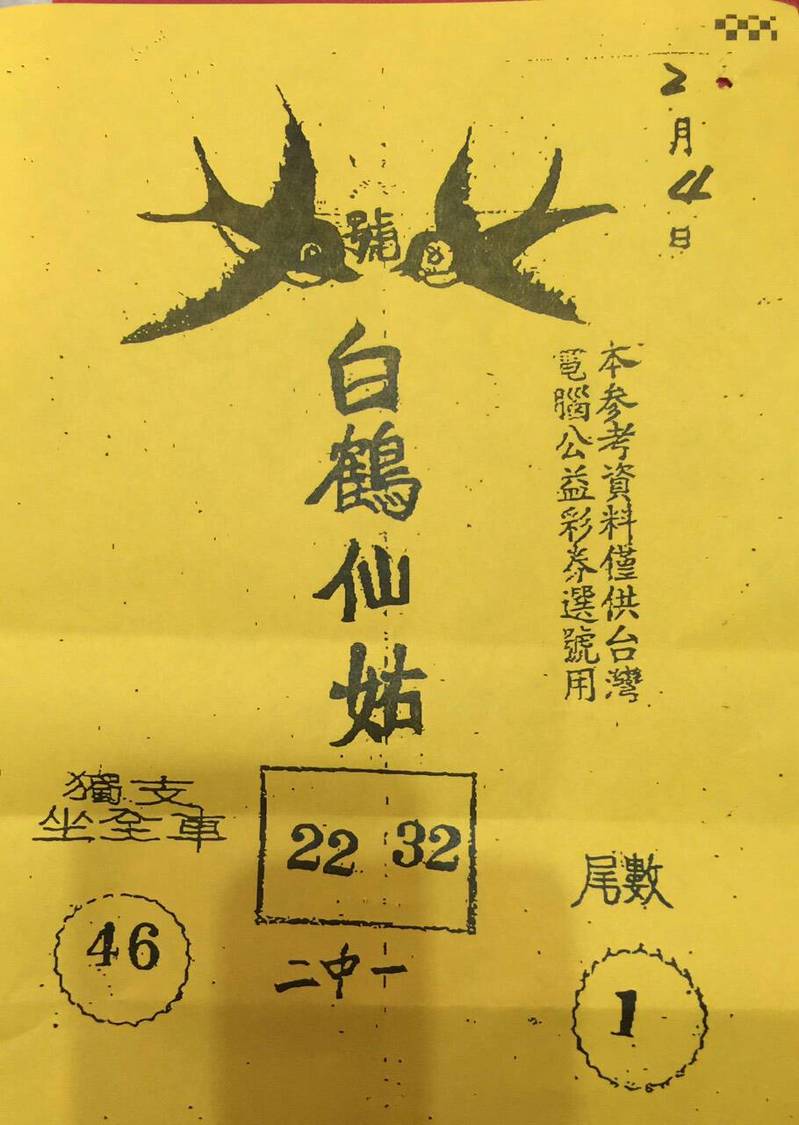 2月4日
號
白鶴仙姑
本參考資料僅供台灣
電腦公益彩券選號用
獨支
坐全車
46
22 32
二中一
尾數
1